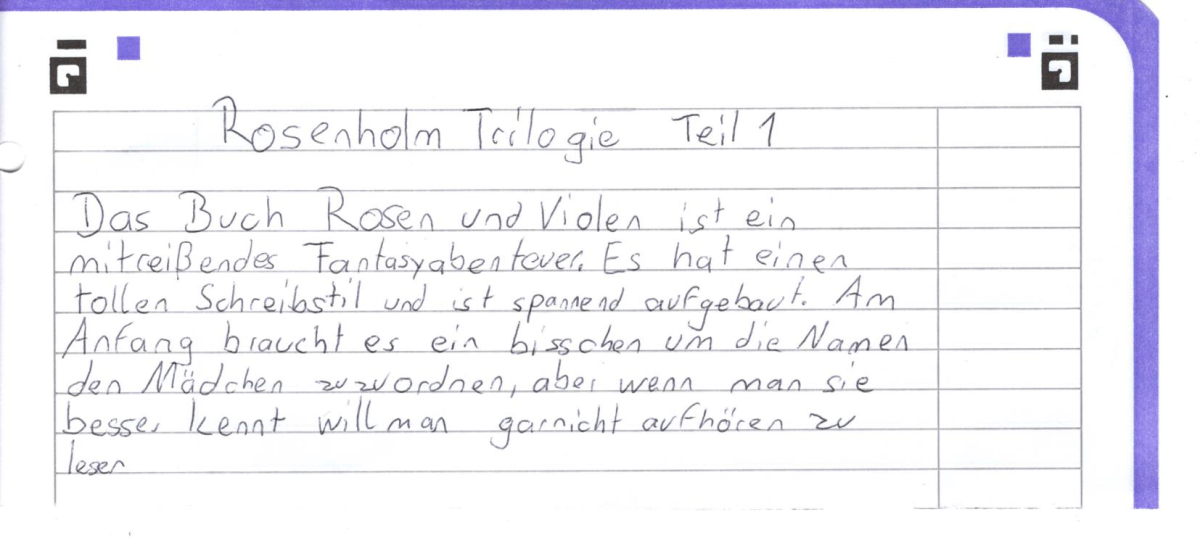 Rosenholm Trilogie Teil 1
Das Buch Rosen und Violen ist ein
mitreißendes Fantasyabenteuer. Es hat einen
tollen Schreibstil und ist spannend aufgebaut. Am
Anfang braucht es ein bisschen um die Namen
den Mädchen zuzuordnen, aber wenn man sie
besser kennt will man garnicht aufhören zu
lesen